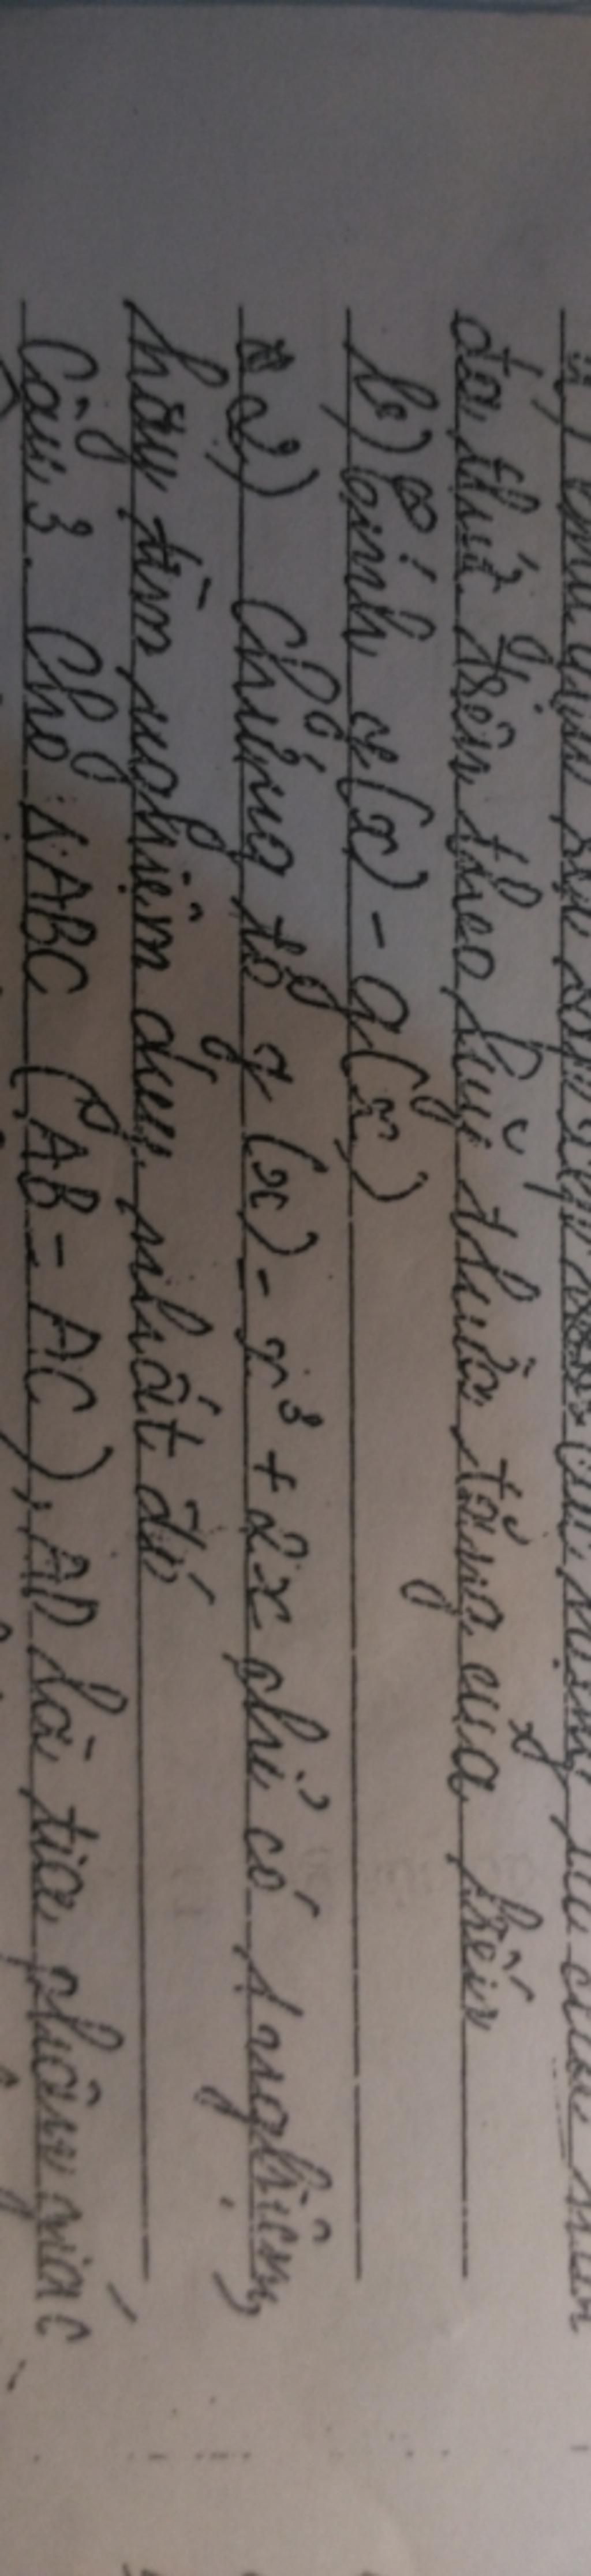 đa thức trên theo luỹ thừa tăng của biến
b) Tính f(x) - g(x)
2) Chứng tỏ g(x) = x³ + 2x chỉ có 1 nghiệm,
hãy tìm nghiệm duy nhất đó
Câu 3. Cho ΔABC (AB = AC), AD là tia phân giác